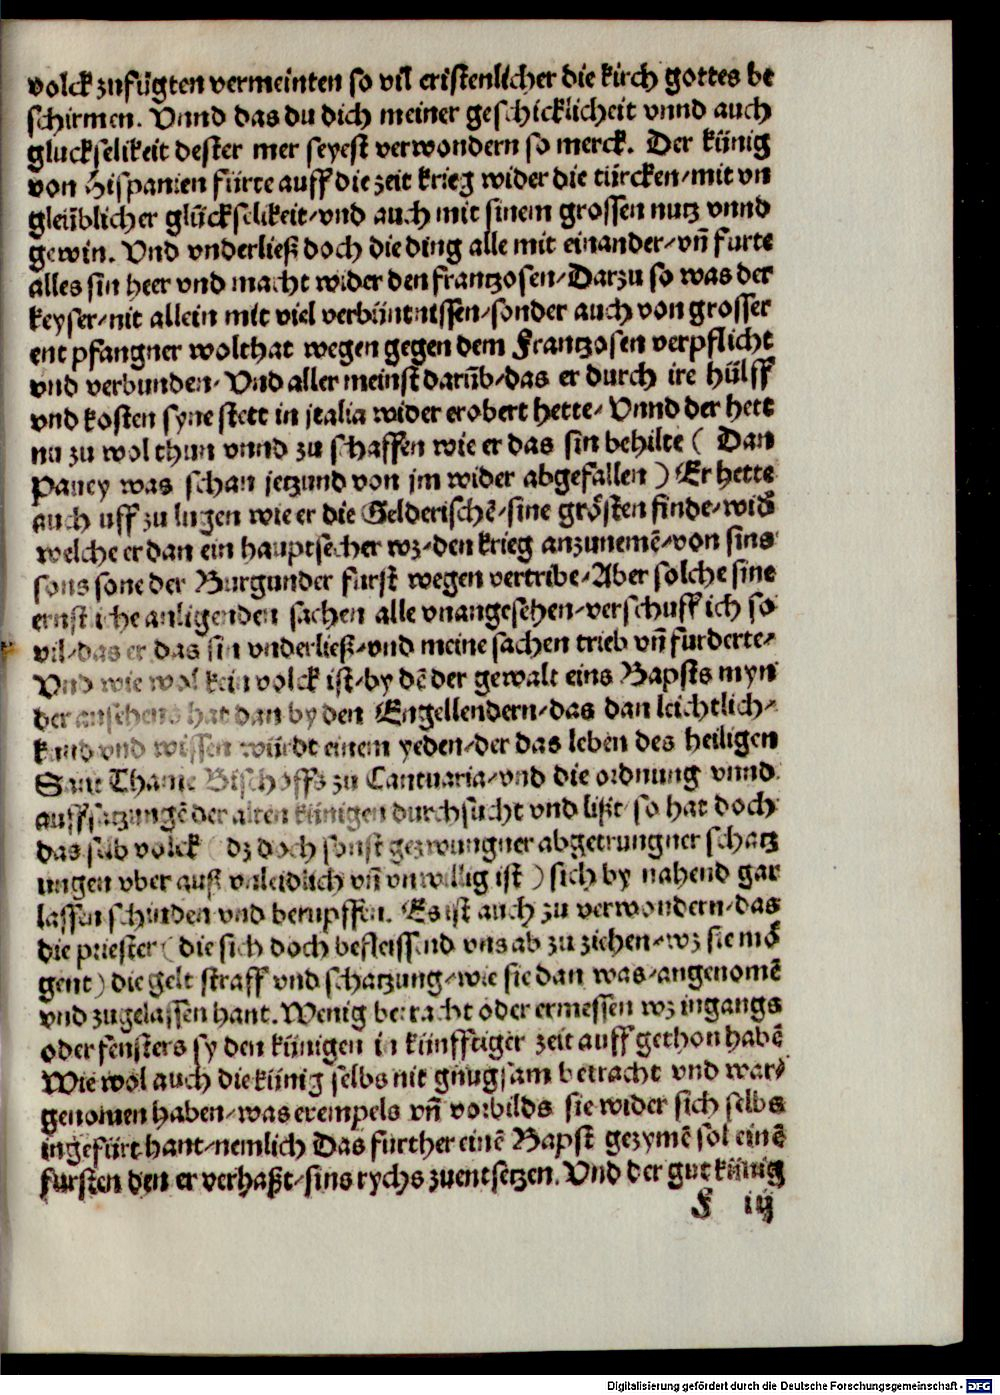 volck zufügten vermeinten so vil cristenlicher die kirch gottes be
schirmen. Vnnd das du dich meiner geschicklicheit vnnd auch
gluckselikeit dester mer seyest verwondern so merck. Der künig
von Hispanien fürte auff die zeit krieg wider die türcken/mit vn
gleüblicher glückselikeit/vnd auch mit sinem grossen nutz vnnd
gewin. Vnd vnderließ doch die ding alle mit einander/vñ furte
alles sin heer vnd macht wider den frantzosen/Darzu so was der
keyser/nit allein mit viel verbüntnissen/sonder auch von grosser
ent pfangner wolthat wegen gegen dem Frantzosen verpflicht
vnd verbunden/Vnd aller meinst darüb/das er durch ire hülff
vnd kosten syne stett in jtalia wider erobert hette/Vnnd der hett
nu zu wol thun vnnd zu schaffen wie er das sin behilte ( Dan
Pauey was schan jetzund von jm wider abgefallen ) Er hette
auch uff zu lugen wie er die Gelderischẽ/sine grösten finde/widð
welche er dan ein hauptsecher wz/den krieg anzunemẽ/von sins
sons sone der Burgunder furst wegen vertribe/Aber solche sine
ernstliche anligenden sachen alle vnangesehen/verschuff ich so
vil/das er das sin vnderließ/vnd meine sachen trieb vñ furderte/
Vnd wie wol kein volck ist/by dẽ der gewalt eins Bapsts myn
der ansehens hat dan by den Engellendern/das dan leichtlich/
kund vnd wissen würdt einem yeden/der das leben des heiligen
Sant Thame Bischoffs zu Cantuaria/vnd die ordnung vnnd
auffsatzungẽ der alten künigen durchsucht vnd lißt so hat doch
das selb volck ( dz doch sonst gezwungner abgetrungner schatz
ungen vber auß vnleidlich vñ vnwillig ist ) sich by nahend gar
lassen schinden vnd berupffen. Es ist auch zu verwondern/das
die priester ( die sich doch befleissend vns ab zu ziehen/wz sie mö
gent ) die gelt straff vnd schatzung/wie sie dan was/angenomẽ
vnd zugelassen hant. Wenig betracht oder ermessen wz ingangs
oder fensters sy den künigen in künfftiger zeit auff gethon habẽ
Wie wol auch die künig selbs nit gnugsam betracht vnd war/
genomen haben/was exempels vñ vorbilds sie wider sich selbs
ingefürt hant/nemlich Das fürther einẽ Bapst gezymẽ sol einẽ
fursten den er verhaßt/sins rychs zuentsetzen. Vnd der gut künig
F iij
Digitalisierung gefördert durch die Deutsche Forschungsgemeinschaft - DFG